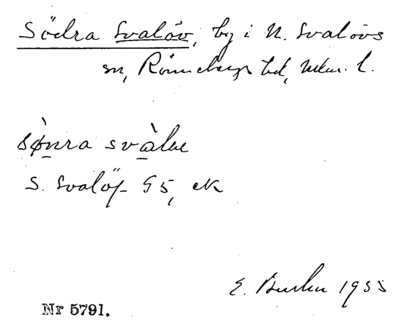 Södra Svalöv, by i N. Svalövs
sn, Rönnebergs hd, Mlm. l.
sø̀nra svàlue
S. Svalöf G5, ek
E. 1955
Nr 5791.